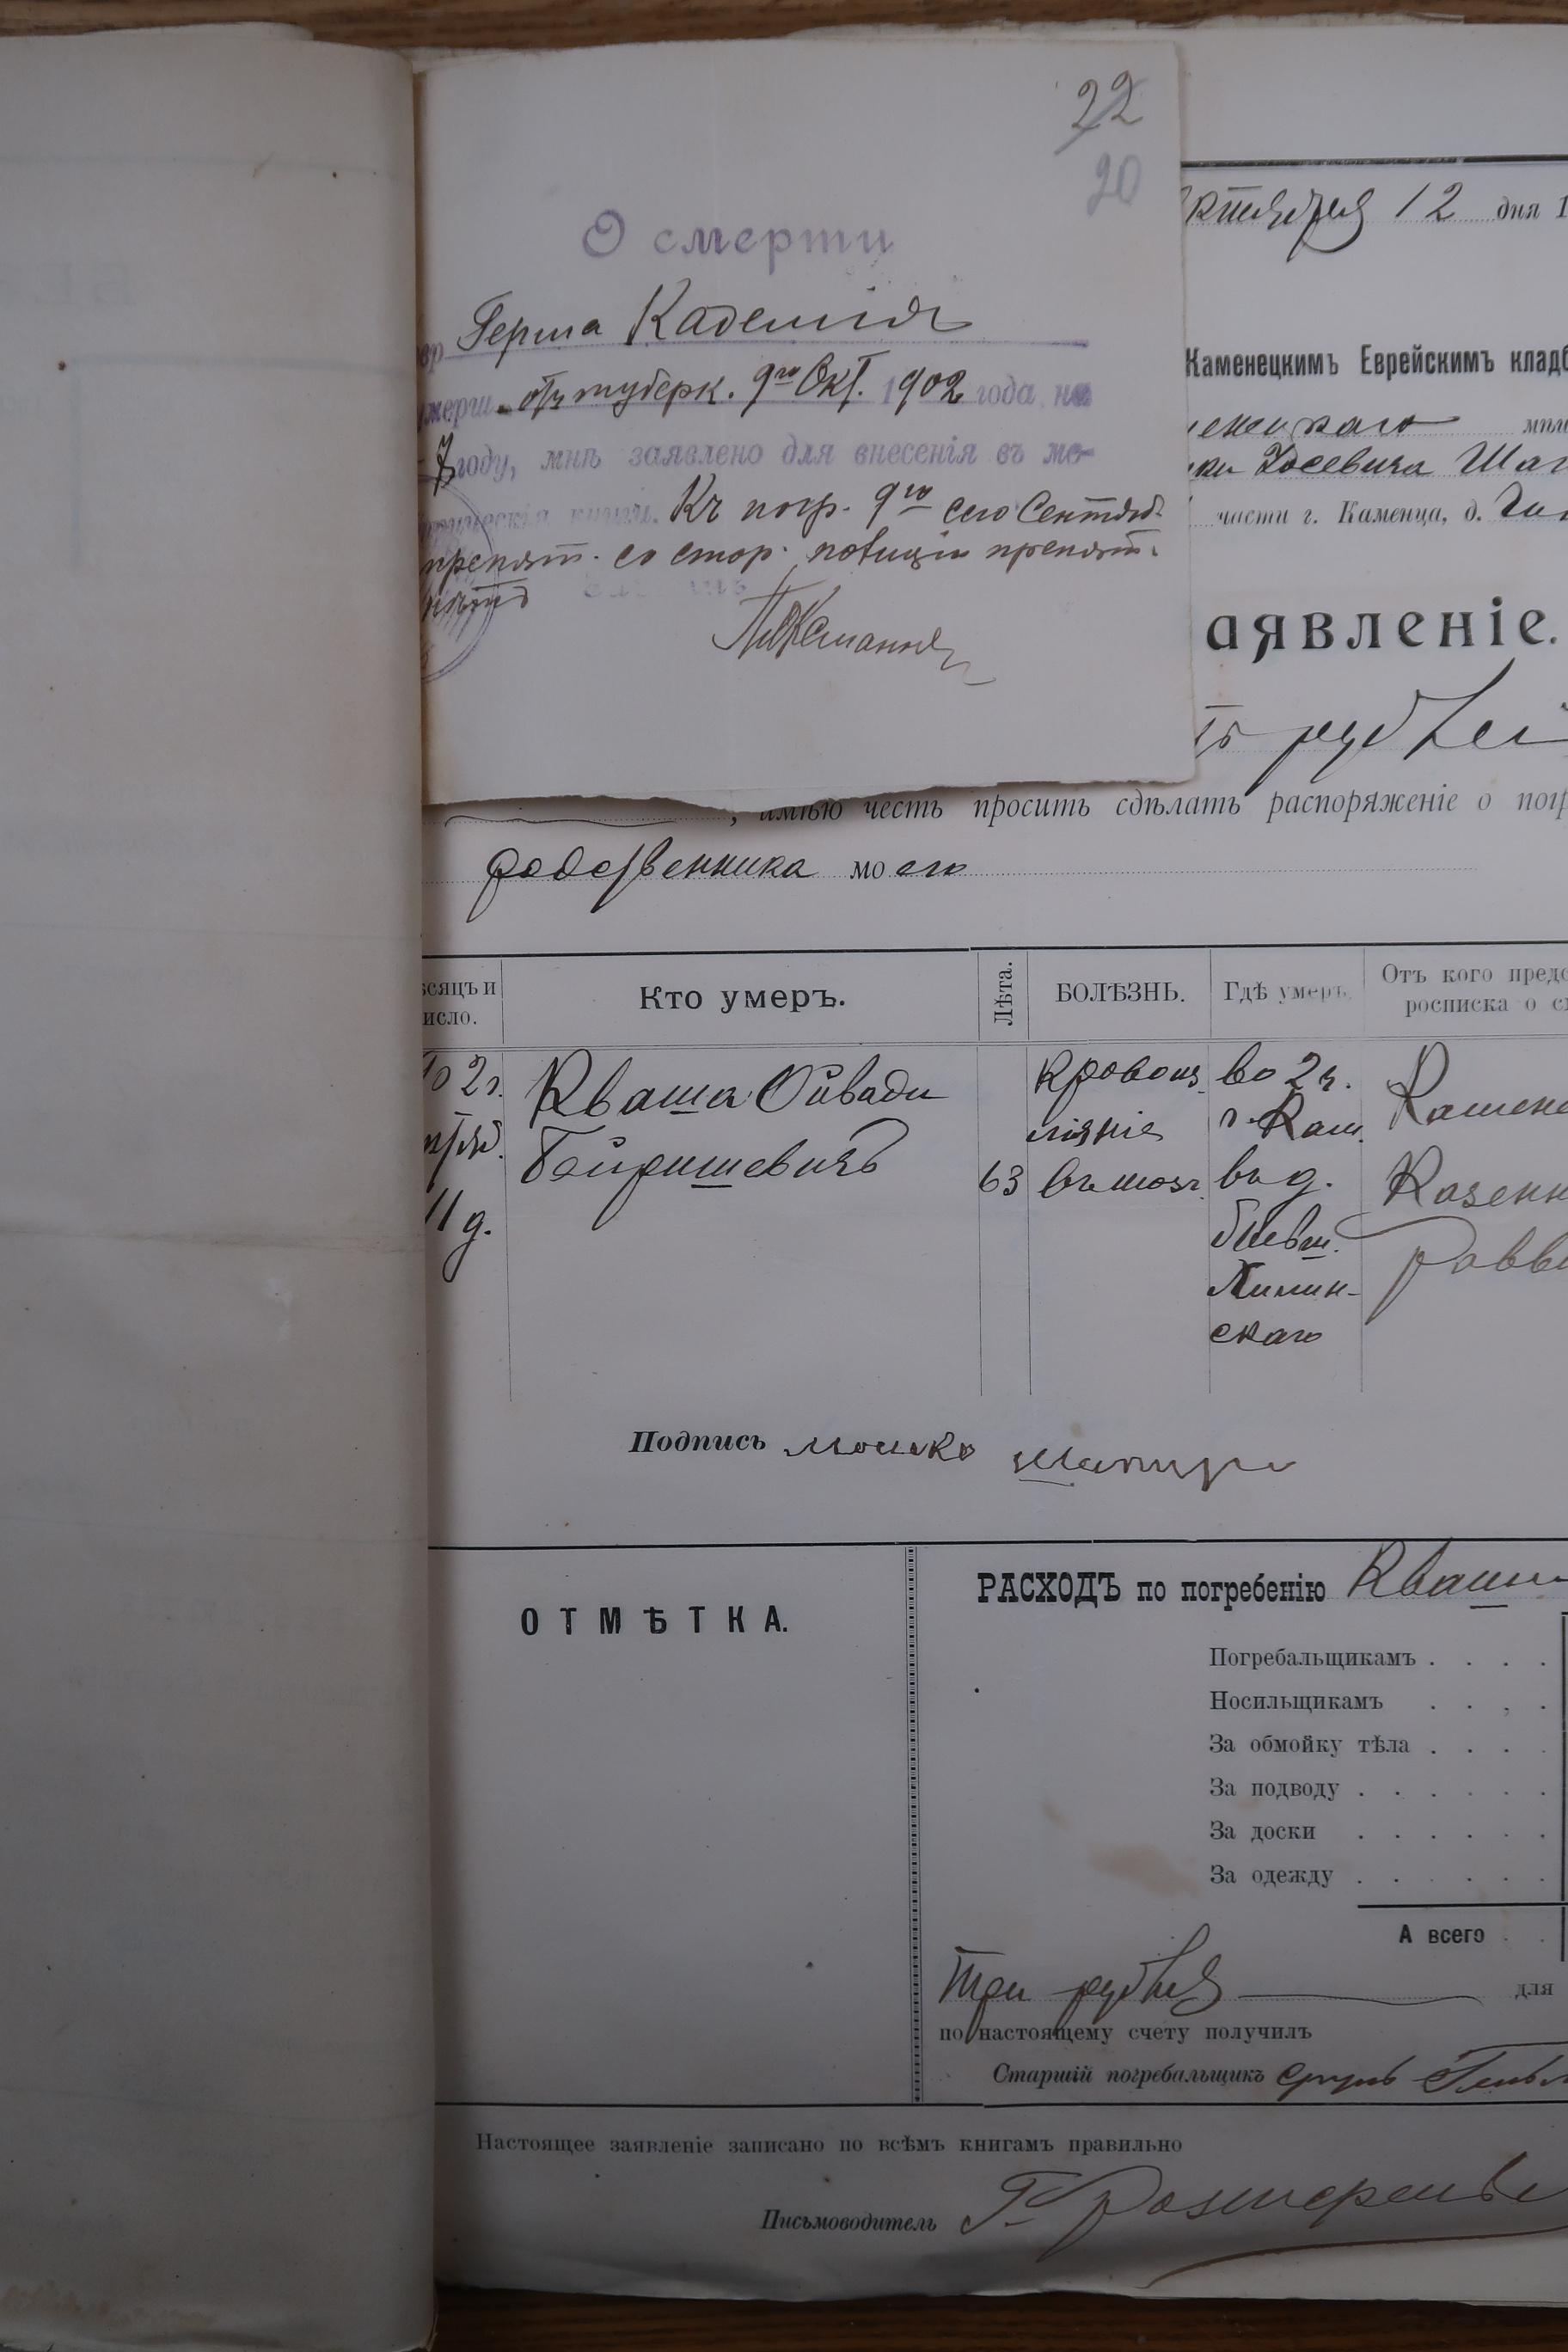 22
20
О смерти
Герша Кадешія
умерш. отъ туберк. 9го Окт. 1902 года на
7 году, мнѣ заявлено для внесенія въ ме-
трическія книги. Къ погр. 9го сего Сентяб.
препят. со стор. полиціи препят.
нѣтъ
ктября 12 дня 1
Каменецкимъ Еврейскимъ кладб
енецкаго мѣщ
Іосевича Шап
части г. Каменца, д.
аявленіе.
ть рублей
, имѣю честь просить сдѣлать распоряженіе о погр
родственника моего
сяцъ и
исло.
Кто умеръ.
Лѣта.
БОЛѢЗНЬ.
Гдѣ умеръ.
Отъ кого предс
росписка о с
02 г.
11 д.
Кваша Овади
63
Кровоиз
ліяніе
въ мозг.
во 2 ч.
г. Кам.
въ д.
бывш.
Лимин-
скаго
Камене
Казенн
равви
Подпись мошко шапиро
ОТМѢТКА.
РАСХОДЪ по погребенію Кваши
Погребальщикамъ . . . .
Носильщикамъ . . . .
За обмойку тѣла . . . .
За подводу . . . . . .
За доски . . . . . .
За одежду . . . . . .
А всего . .
Три рубля для
по настоящему счету получилъ
Старшій погребальщикъ Сруль
Настоящее заявленіе записано по всѣмъ книгамъ правильно
Письмоводитель Г.